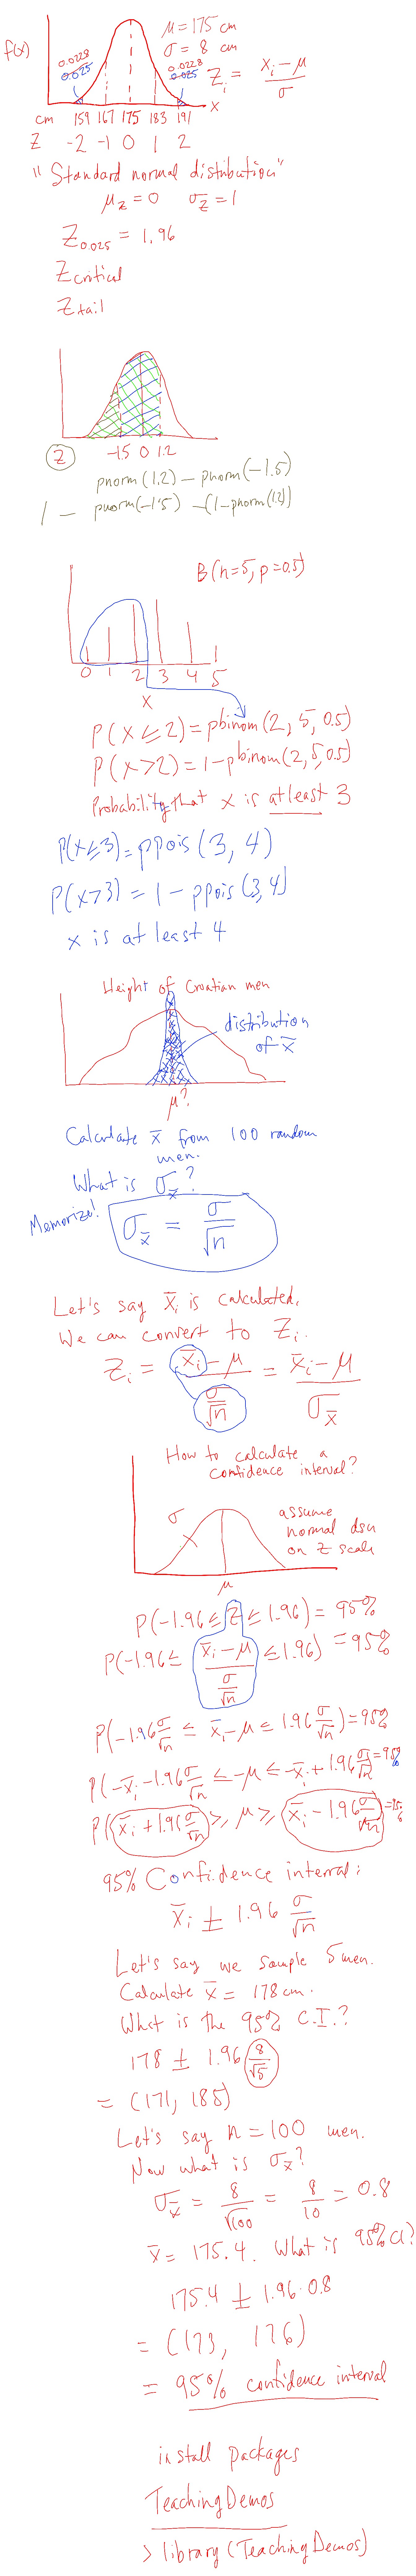 f(x)
μ = 175 cm
σ = 8 cm
0.0228
0.025
0.0228
0.025
Z_i = (x_i − μ) / σ
x
cm 159 167 175 183 191
Z -2 -1 0 1 2
"Standard normal distribution"
μ_Z = 0 σ_Z = 1
Z_0.025 = 1.96
Z critical
Z tail
Z -1.5 0 1.2
pnorm(1.2) − pnorm(−1.5)
1 − pnorm(−1.5) − (1−pnorm(1.2))
B(n=5, p=0.5)
0 1 2 3 4 5
x
P(x ≤ 2) = pbinom(2, 5, 0.5)
P(x > 2) = 1 − pbinom(2, 5, 0.5)
Probability that x is at least 3
P(x ≤ 3) = ppois(3, 4)
P(x > 3) = 1 − ppois(3, 4)
x is at least 4
Height of Croatian men
distribution
of x̄
μ?
Calculate x̄ from 100 random
men.
What is σ_x̄?
Memorize!
σ_x̄ = σ / √n
Let's say x̄_i is calculated.
We can convert to Z_i.
Z_i = (x̄_i − μ) / (σ/√n) = (x̄_i − μ) / σ_x̄
How to calculate a
confidence interval?
σ
assume
normal dsn
on Z scale
μ
P(−1.96 ≤ Z ≤ 1.96) = 95%
P(−1.96 ≤ (x̄_i − μ) / (σ/√n) ≤ 1.96) = 95%
P(−1.96 σ/√n ≤ x̄_i − μ ≤ 1.96 σ/√n) = 95%
P(−x̄_i − 1.96 σ/√n ≤ −μ ≤ −x̄_i + 1.96 σ/√n) = 95%
P(x̄_i + 1.96 σ/√n ≥ μ ≥ x̄_i − 1.96 σ/√n) = 95%
95% Confidence interval:
x̄_i ± 1.96 σ/√n
Let's say we sample 5 men.
Calculate x̄ = 178 cm.
What is the 95% C.I.?
178 ± 1.96 8/√5
= (171, 185)
Let's say n = 100 men.
Now what is σ_x̄?
σ_x̄ = 8/√100 = 8/10 = 0.8
x̄ = 175.4. What is 95% CI?
175.4 ± 1.96 · 0.8
= (173, 176)
= 95% confidence interval
install packages
TeachingDemos
> library(TeachingDemos)